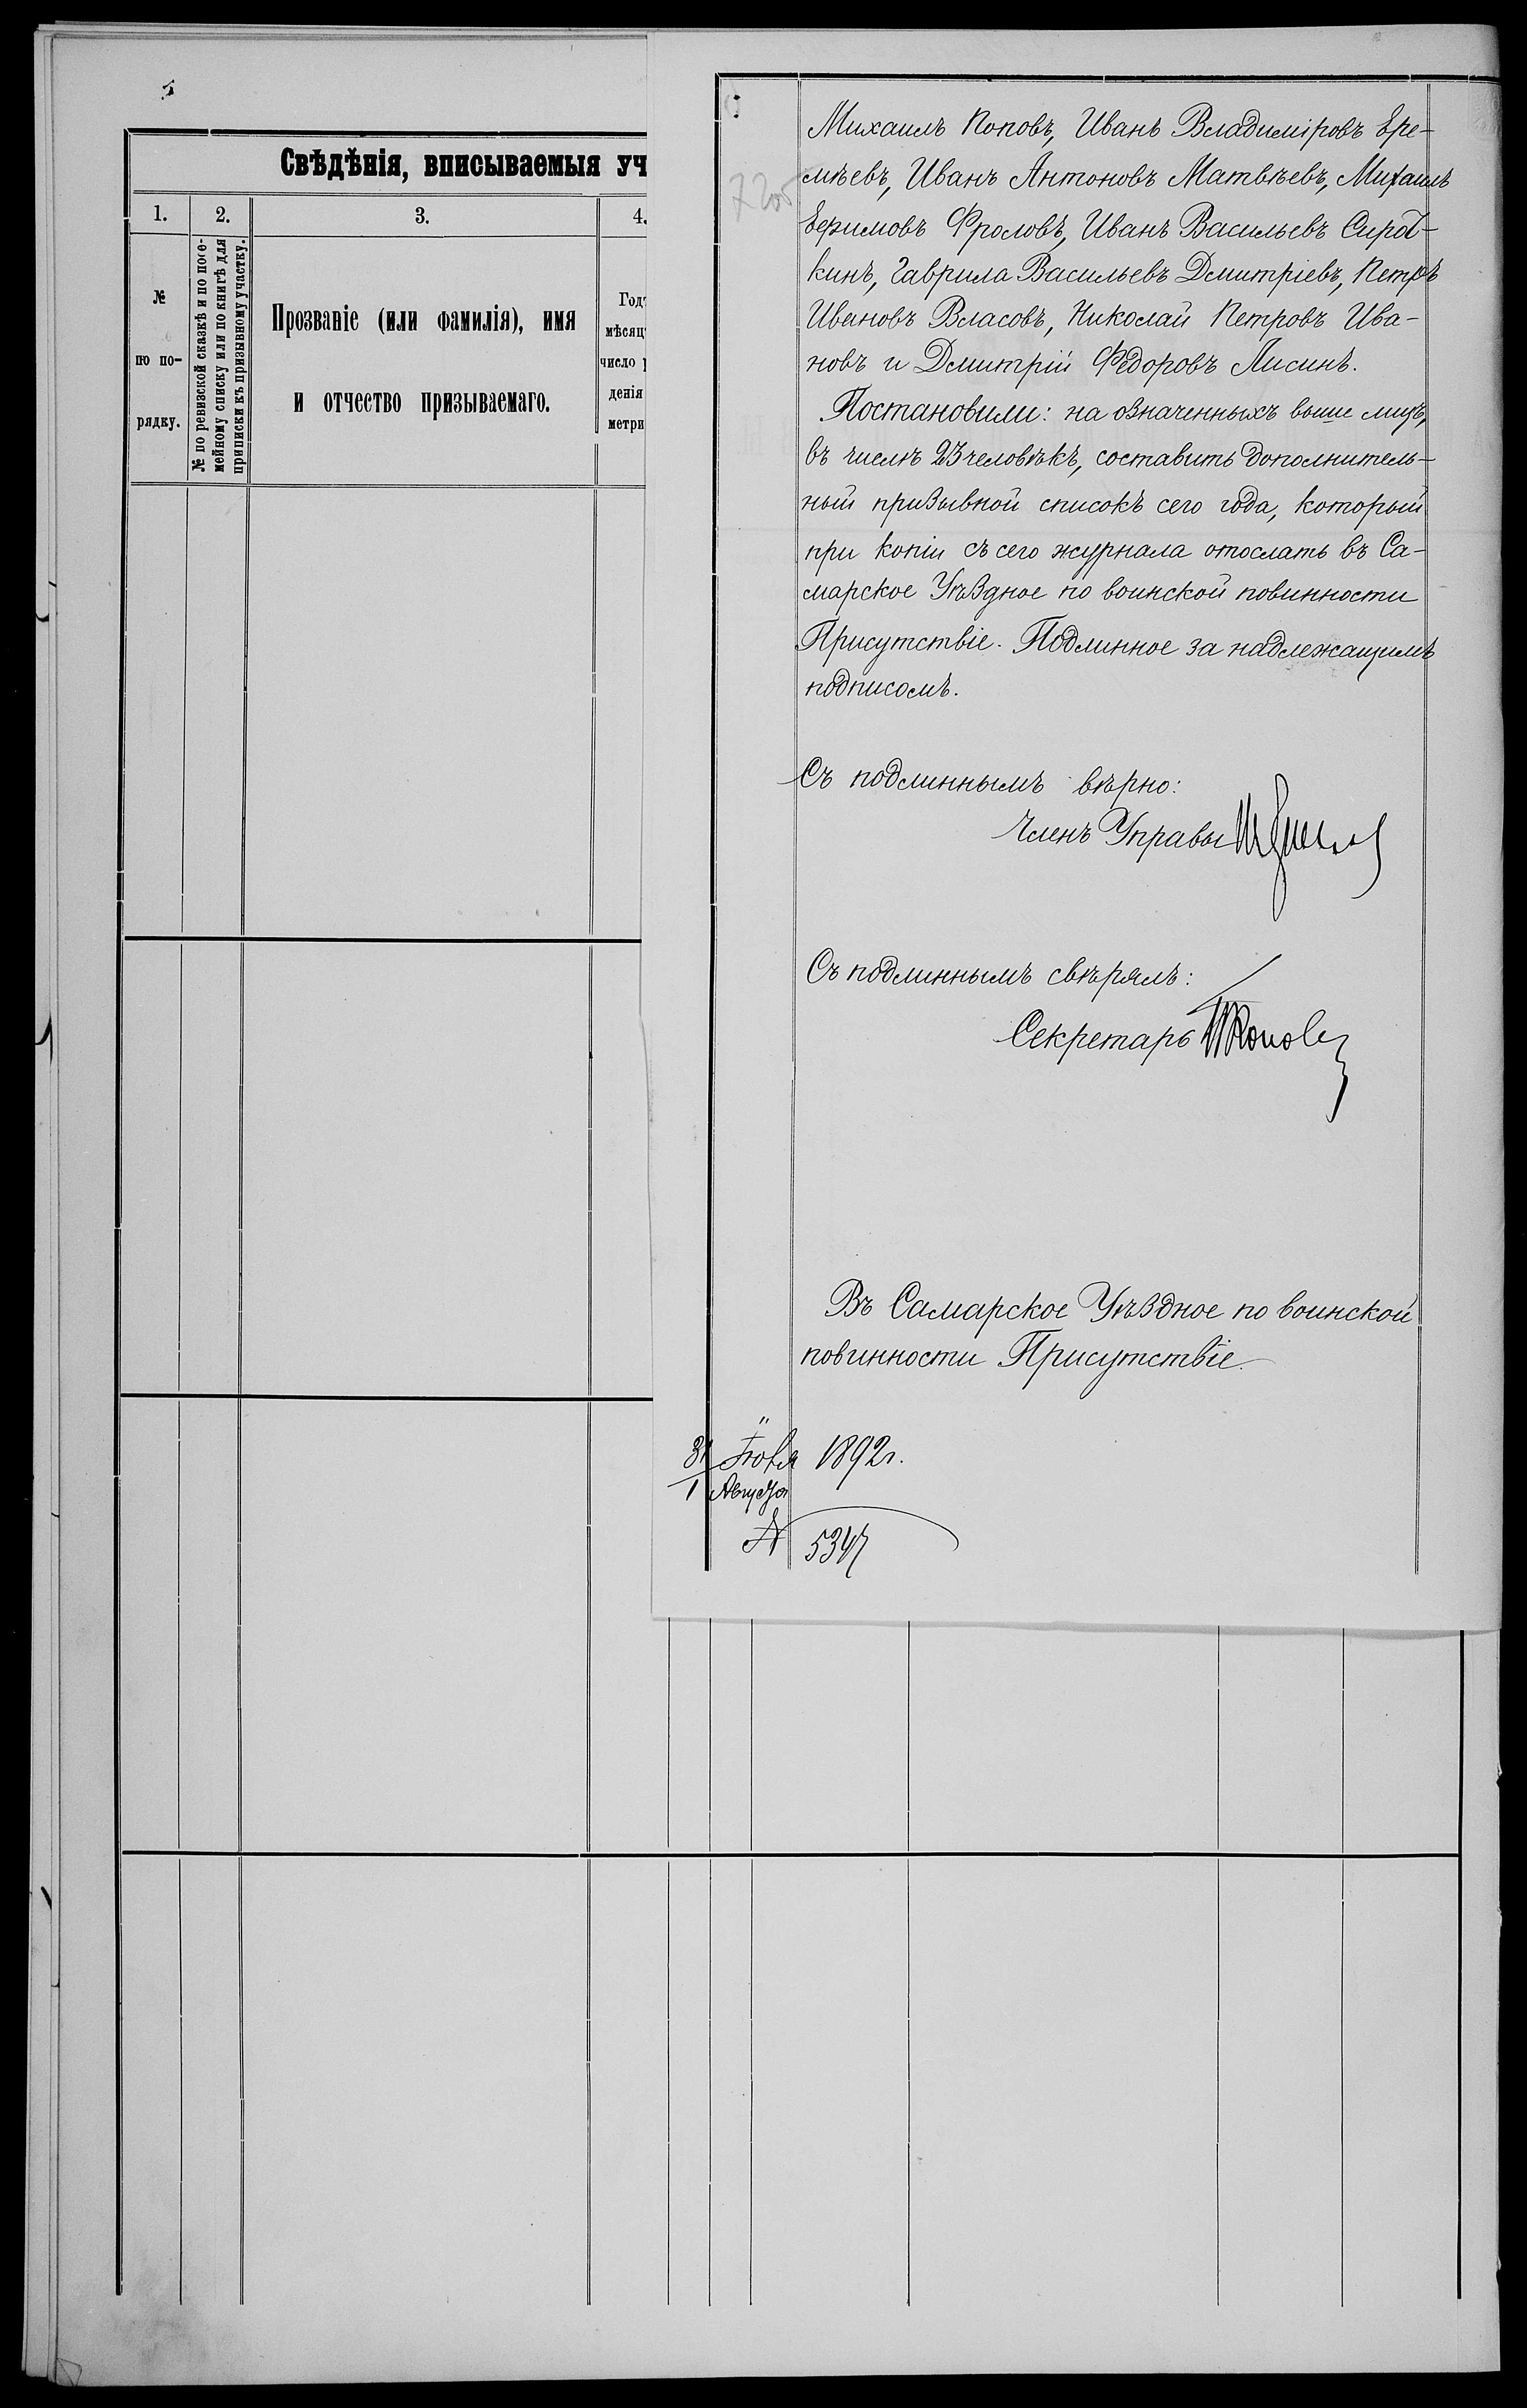 Свѣдѣнія, вписываемыя уч
1.
2.
3.
4.
№
по по-
рядку.
№ по ревизской сказкѣ и по посе-
мейному списку или по книгѣ для
приписки къ призывному участку.
Прозваніе (или фамилія), имя
и отчество призываемаго.
Год
мѣсяц
число
денія
метри
Михаилъ Поповъ, Иванъ Владиміровъ Ере-
мѣевъ, Иванъ Антоновъ Матвѣевъ, Михаилъ
Ефимовъ Фроловъ, Иванъ Васильевъ Сирот-
кинъ, Гаврила Васильевъ Дмитріевъ, Петръ
Ивановъ Власовъ, Николай Петровъ Ива-
новъ и Дмитрій Федоровъ Лисинъ.
Постановили: на означенныхъ выше лицъ,
въ числѣ 23 человѣкъ, составить дополнитель-
ный призывной списокъ сего года, который
при копіи съ сего журнала отослать въ Са-
марское Уѣздное по воинской повинности
Присутствіе. Подлинное за надлежащимъ
подписомъ.
Съ подлиннымъ вѣрно:
Членъ Управы
Съ подлиннымъ свѣрялъ:
Секретарь ПКопов
Въ Самарское Уѣздное по воинской
повинности Присутствіе.
31 Іюля 1892 г.
1 Августа
№ 5347